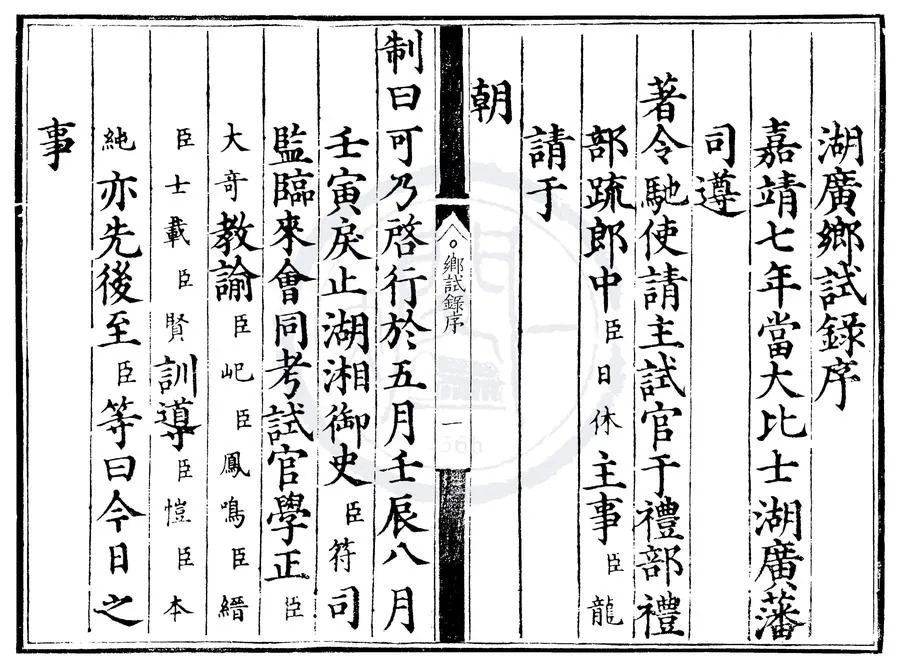 湖廣鄉試錄序
嘉靖七年當大比士湖廣藩
司遵
著令馳使請主試官于禮部禮
部疏郎中臣日休主事臣龍
請于
朝
鄉試錄序 一
制曰可乃啓行於五月壬辰八月
壬寅戾止湖湘御史臣符司
監臨來會同考試官學正臣
大奇教諭臣屺臣鳳鳴臣縉
臣士載臣賢訓導臣愷臣本
純亦先後至臣等曰今日之
事